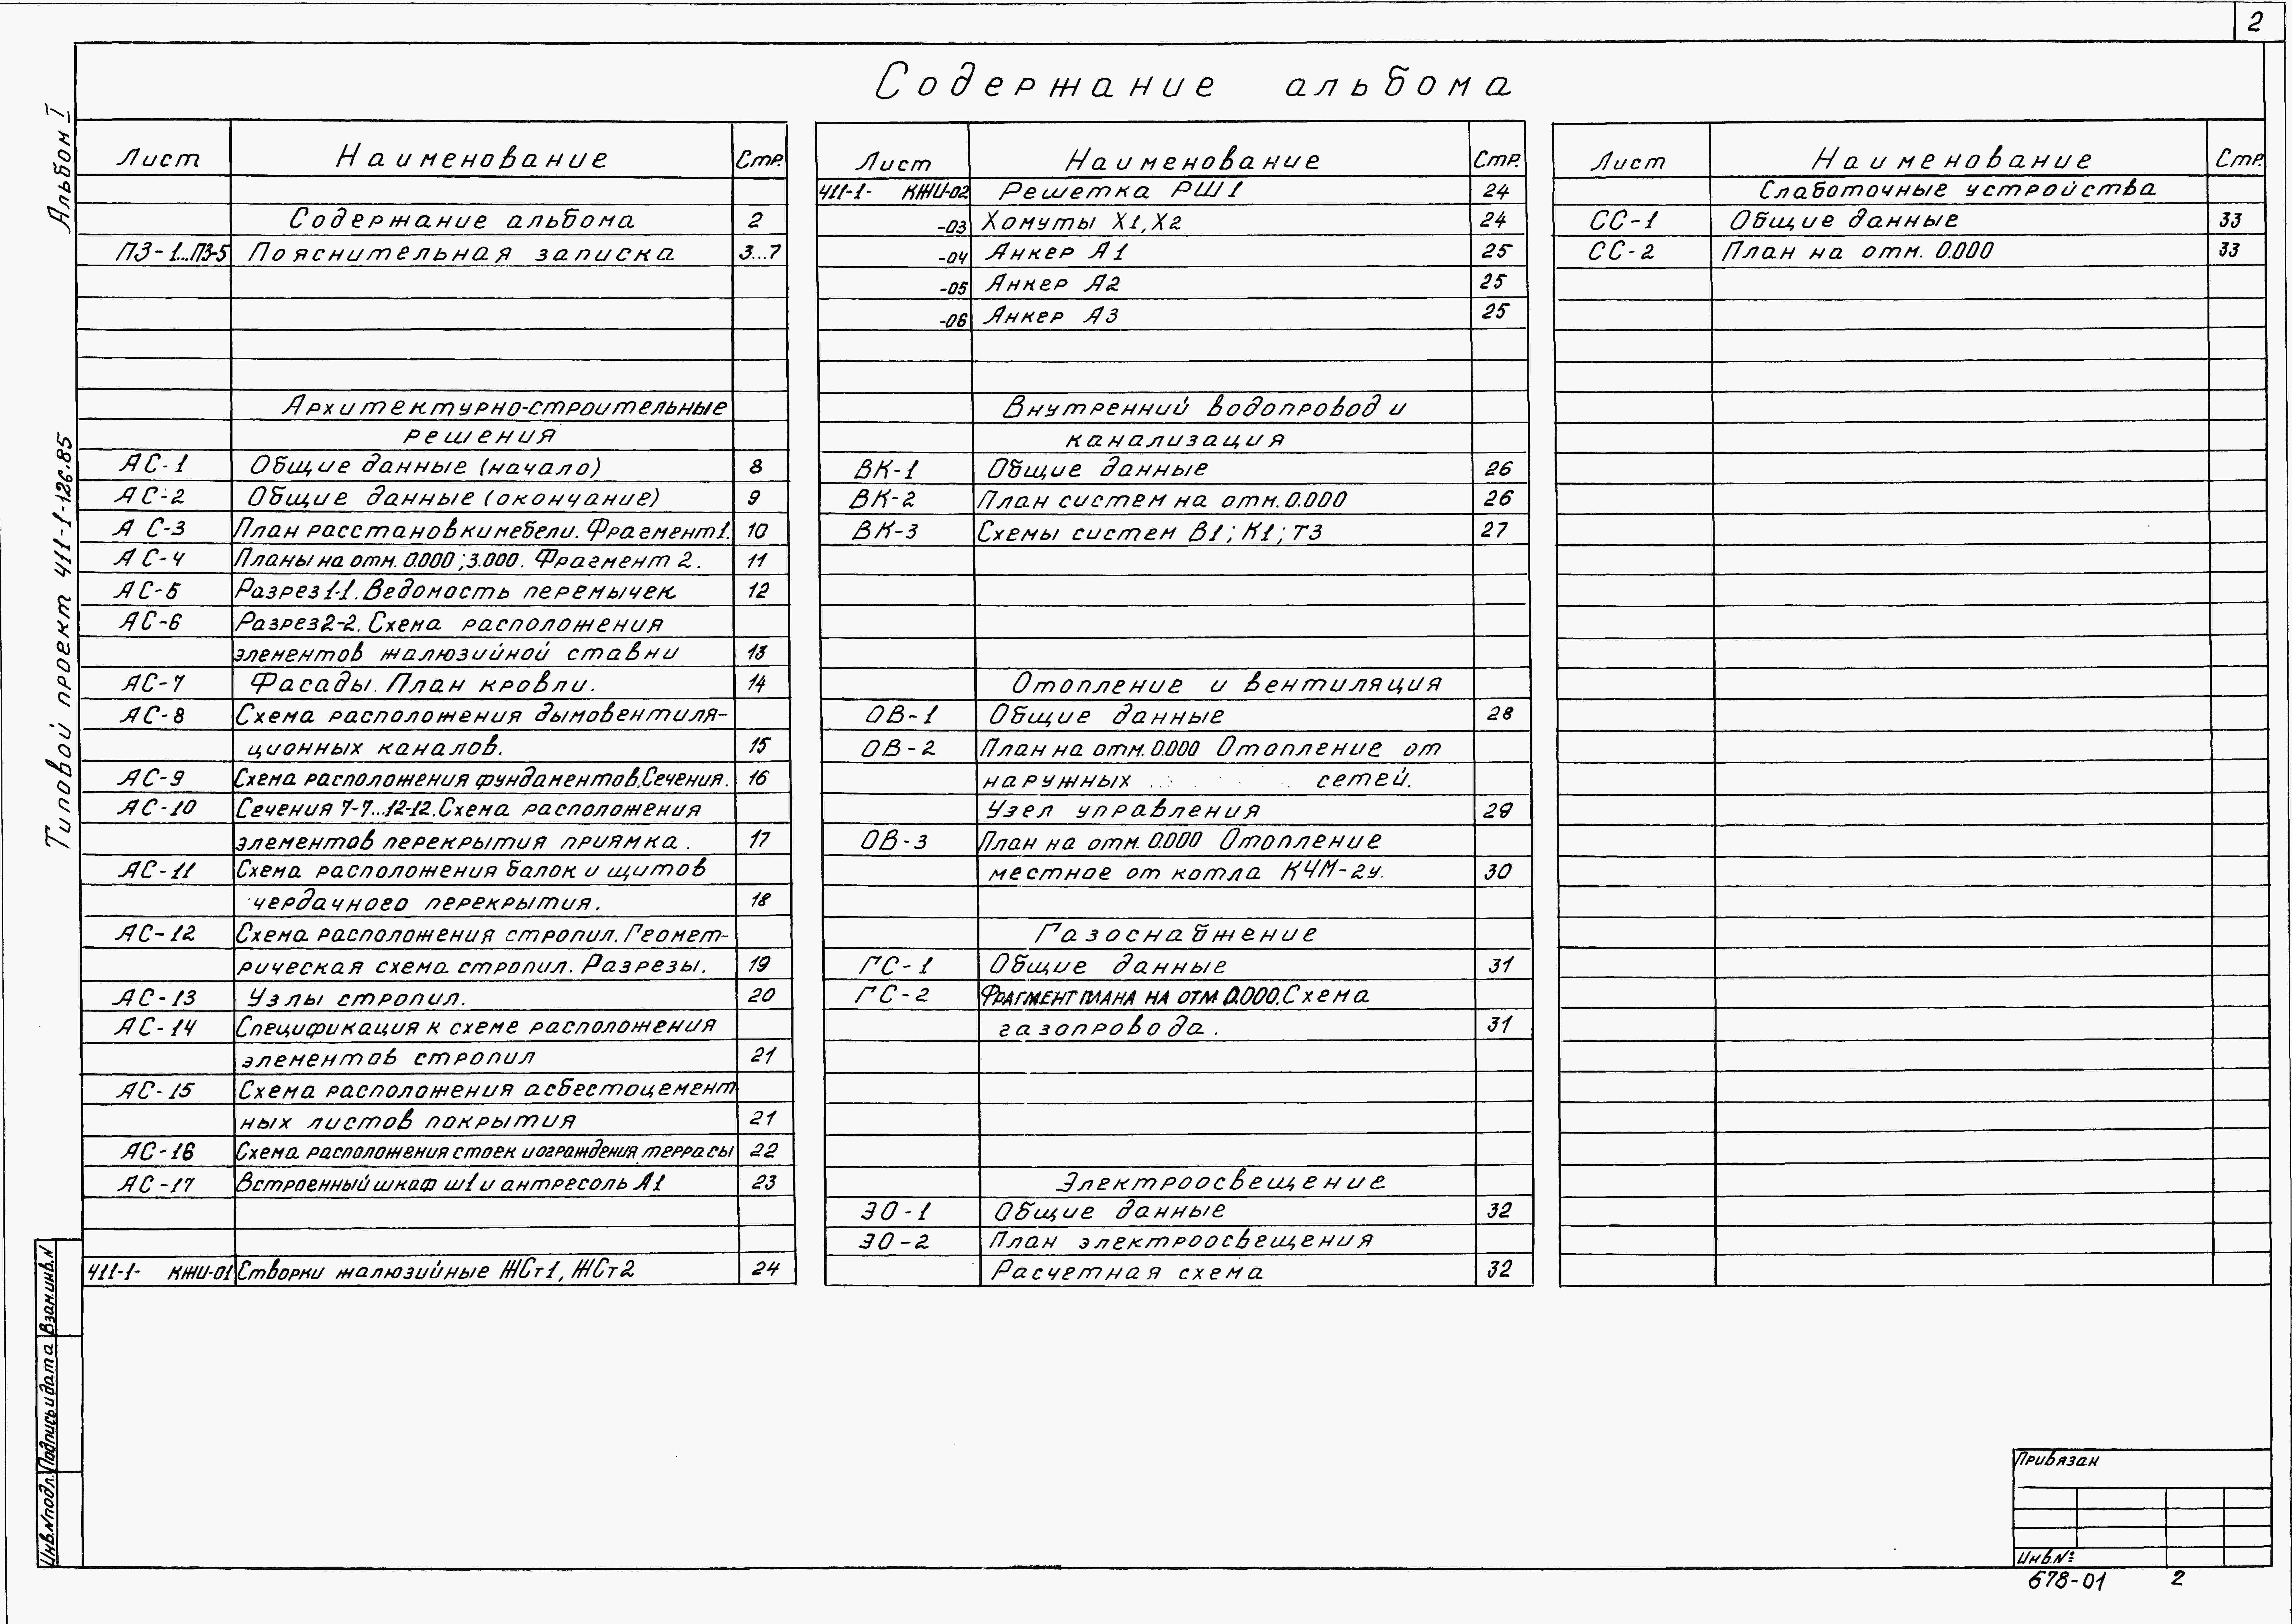 2
Содержание альбома
Альбом I
Типовой проект 411-1-126.85
Лист Наименование Стр.
Содержание альбома 2
ПЗ-1...ПЗ-5 Пояснительная записка 3...7
Архитектурно-строительные
решения
АС-1 Общие данные (начало) 8
АС-2 Общие данные (окончание) 9
АС-3 План расстановки мебели. Фрагмент 1. 10
АС-4 Планы на отм. 0.000; 3.000. Фрагмент 2. 11
АС-5 Разрез 1-1. Ведомость перемычек 12
АС-6 Разрез 2-2. Схема расположения
элементов жалюзийной ставни 13
АС-7 Фасады. План кровли. 14
АС-8 Схема расположения дымовентиля-
ционных каналов. 15
АС-9 Схема расположения фундаментов. Сечения. 16
АС-10 Сечения 7-7...12-12. Схема расположения
элементов перекрытия приямка. 17
АС-11 Схема расположения балок и щитов
чердачного перекрытия. 18
АС-12 Схема расположения стропил. Геомет-
рическая схема стропил. Разрезы. 19
АС-13 Узлы стропил. 20
АС-14 Спецификация к схеме расположения
элементов стропил 21
АС-15 Схема расположения асбестоцемент-
ных листов покрытия 21
АС-16 Схема расположения стоек и ограждения террасы 22
АС-17 Встроенный шкаф ш1 и антресоль А1 23
411-1- КЖИ-01 Створки жалюзийные ЖСт1, ЖСт2 24
Лист Наименование Стр.
411-1- КЖИ-02 Решетка РШ1 24
-03 Хомуты Х1, Х2 24
-04 Анкер А1 25
-05 Анкер А2 25
-06 Анкер А3 25
Внутренний водопровод и
канализация
ВК-1 Общие данные 26
ВК-2 План систем на отм. 0.000 26
ВК-3 Схемы систем В1; К1; Т3 27
Отопление и вентиляция
ОВ-1 Общие данные 28
ОВ-2 План на отм. 0.000 Отопление от
наружных сетей.
Узел управления 29
ОВ-3 План на отм. 0.000 Отопление
местное от котла КЧМ-2у. 30
Газоснабжение
ГС-1 Общие данные 31
ГС-2 Фрагмент плана на отм 0.000. Схема
газопровода. 31
Электроосвещение
ЭО-1 Общие данные 32
ЭО-2 План электроосвещения
Расчетная схема 32
Лист Наименование Стр.
Слаботочные устройства
СС-1 Общие данные 33
СС-2 План на отм. 0.000 33
Взам.инв.N
Подпись и дата
Инв.N подл.
Привязан
Инв.№
678-01 2